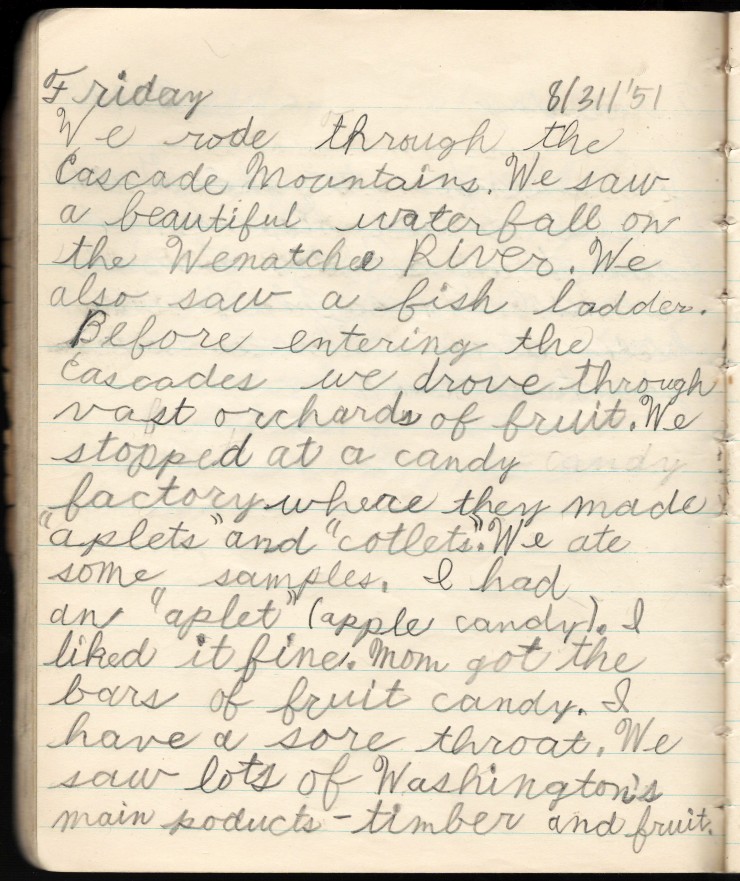 Friday 8/31/'51
We rode through the
Cascade Mountains. We saw
a beautiful waterfall on
the Wenatchee River. We
also saw a fish ladder.
Before entering the
Cascades we drove through
vast orchards of fruit. We
stopped at a candy candy
factory where they made
"aplets" and "cotlets". We ate
some samples. I had
an "aplet" (apple candy). I
liked it fine. Mom got the
bars of fruit candy. I
have a sore throat. We
saw lots of Washington's
main poducts - timber and fruit.